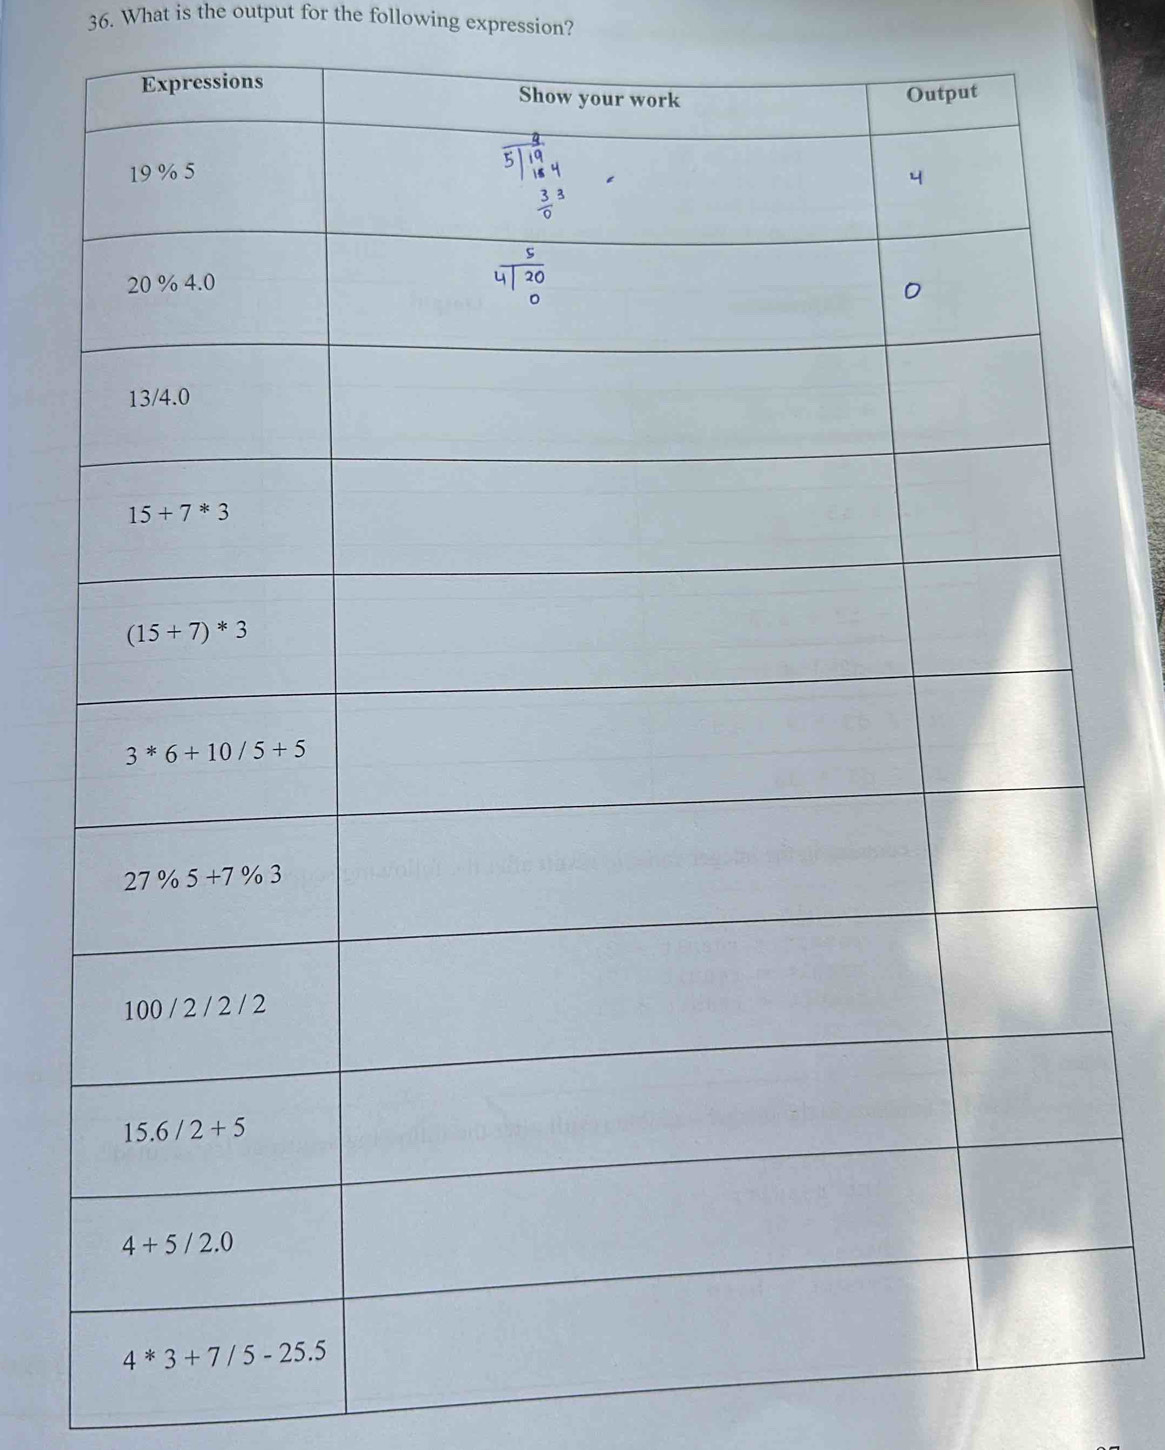 36. What is the output for the following expression?
Expressions
Show your work
Output
19 % 5
5 19
4
4
3 3
0
20 % 4.0
5
4 20
0
0
13/4.0
15 + 7 * 3
(15 + 7) * 3
3 * 6 + 10 / 5 + 5
27 % 5 +7 % 3
100 / 2 / 2 / 2
15.6 / 2 + 5
4 + 5 / 2.0
4 * 3 + 7 / 5 - 25.5